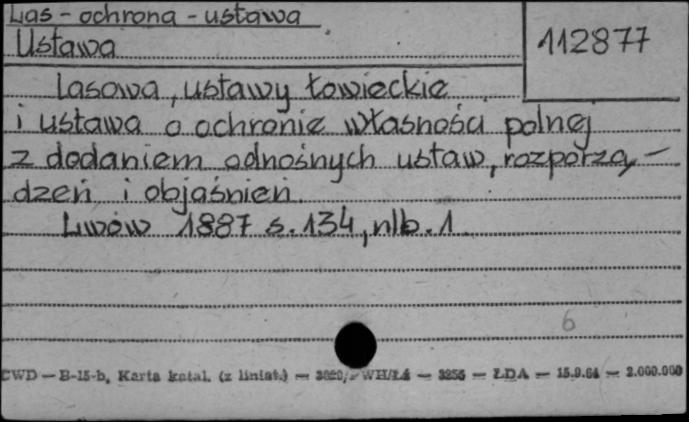 Las - ochrona - ustawa
Ustawa
112877
lasowa, ustawy łowieckie
i ustawa o ochronie własności polnej
z dodaniem odnośnych ustaw, rozporzą-
dzeń i objaśnień.
Lwów 1887 s. 134, nlb. 1
6
CWD — B-15-b, Karta katal. (z liniat.) — WH/Łd — 3255 — ŁDA — 15.9.64 — 2.000.000